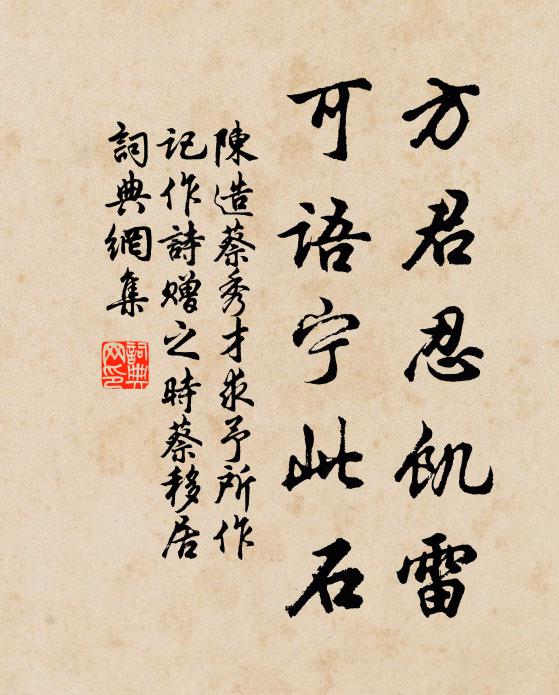 方君忍飢雷
可語宁此石
陳造蔡秀才求予所作
記作詩贈之時蔡移居
詞典網集
詞典
网印